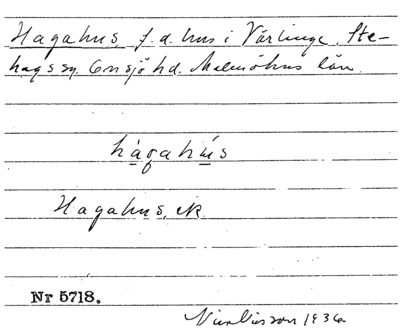 Hagahus, f.d. hus i Värlinge, Ste-
hags sn. Onsjö hd. Malmöhus län.
hàgahús
Hagahus, ek.
Nr 5718.
1936